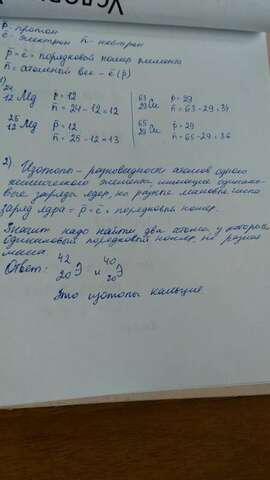 Услов
p̄ - протон
ē - электрон n̄ - нейтрон
p̄ = ē = порядковый номер элемента
n̄ = атомный вес - ē (p̄)
1)
24 12 Mg p̄ = 12
n̄ = 24 - 12 = 12
25 12 Mg p̄ = 12
n̄ = 25 - 12 = 13
63 29 Cu p̄ = 29
n̄ = 63 - 29 = 34
65 29 Cu p̄ = 29
n̄ = 65 - 29 = 36
2) Изотопы - разновидности атомов одного
химического элемента, имеющие одинако-
вые заряды ядер, но разные массовые числа
заряд ядра = p̄ = ē = порядковый номер.
Значит надо найти два атома, у которых
одинаковый порядковый номер, но разная
масса.
Ответ: 42 20 Э и 40 20 Э
Это изотопы кальция.